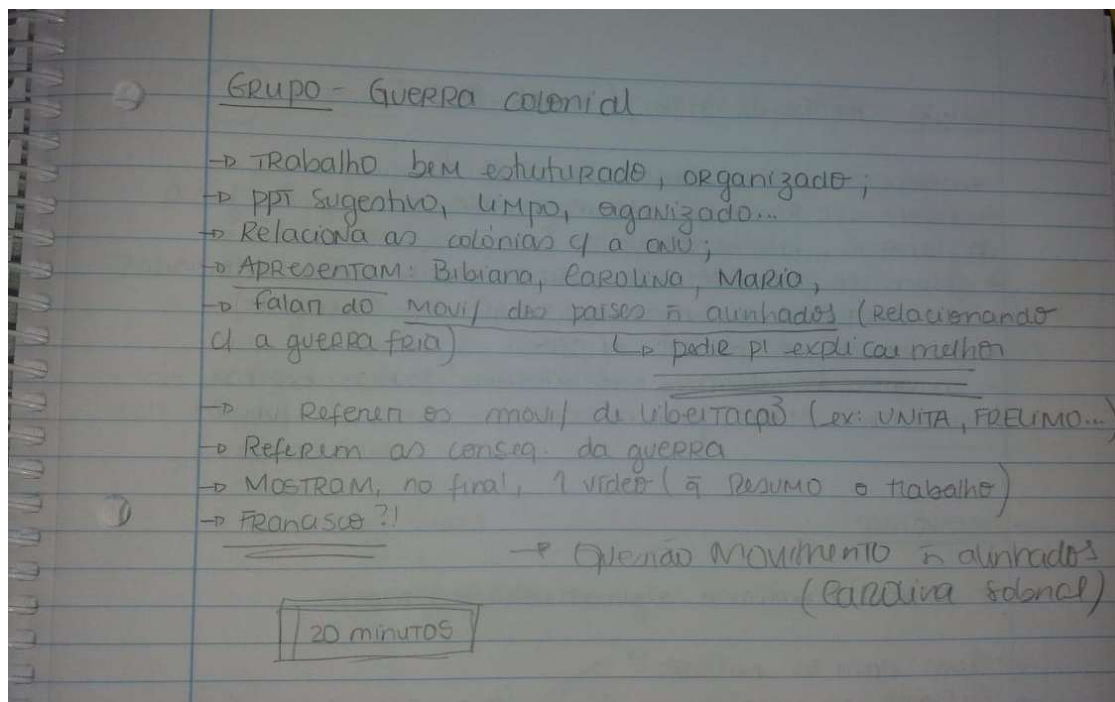 GRUPO - GUERRA colonial
→ TRabalho bem estuturado, organizado;
→ PPT sugestivo, limpo, oganizado...
→ Relaciona as colónias c/ a ONU;
→ APResentam: Bibiana, CAROLINA, MARIA,
→ falan do movi/ dos paises ñ alinhados (Relacionando
c/ a guerra fria) ↳ pedir p/ explicar melhor
→ Referen os movi/ de libertação (ex: UNITA, FRELIMO...)
→ Referem as conseq. da guerra
→ MOSTRAM, no final, 1 vídeo (q̄ Resumo o trabalho)
→ FRancisco?!
→ Questão Movimento ñ alinhados
(Carolina)
20 minutos